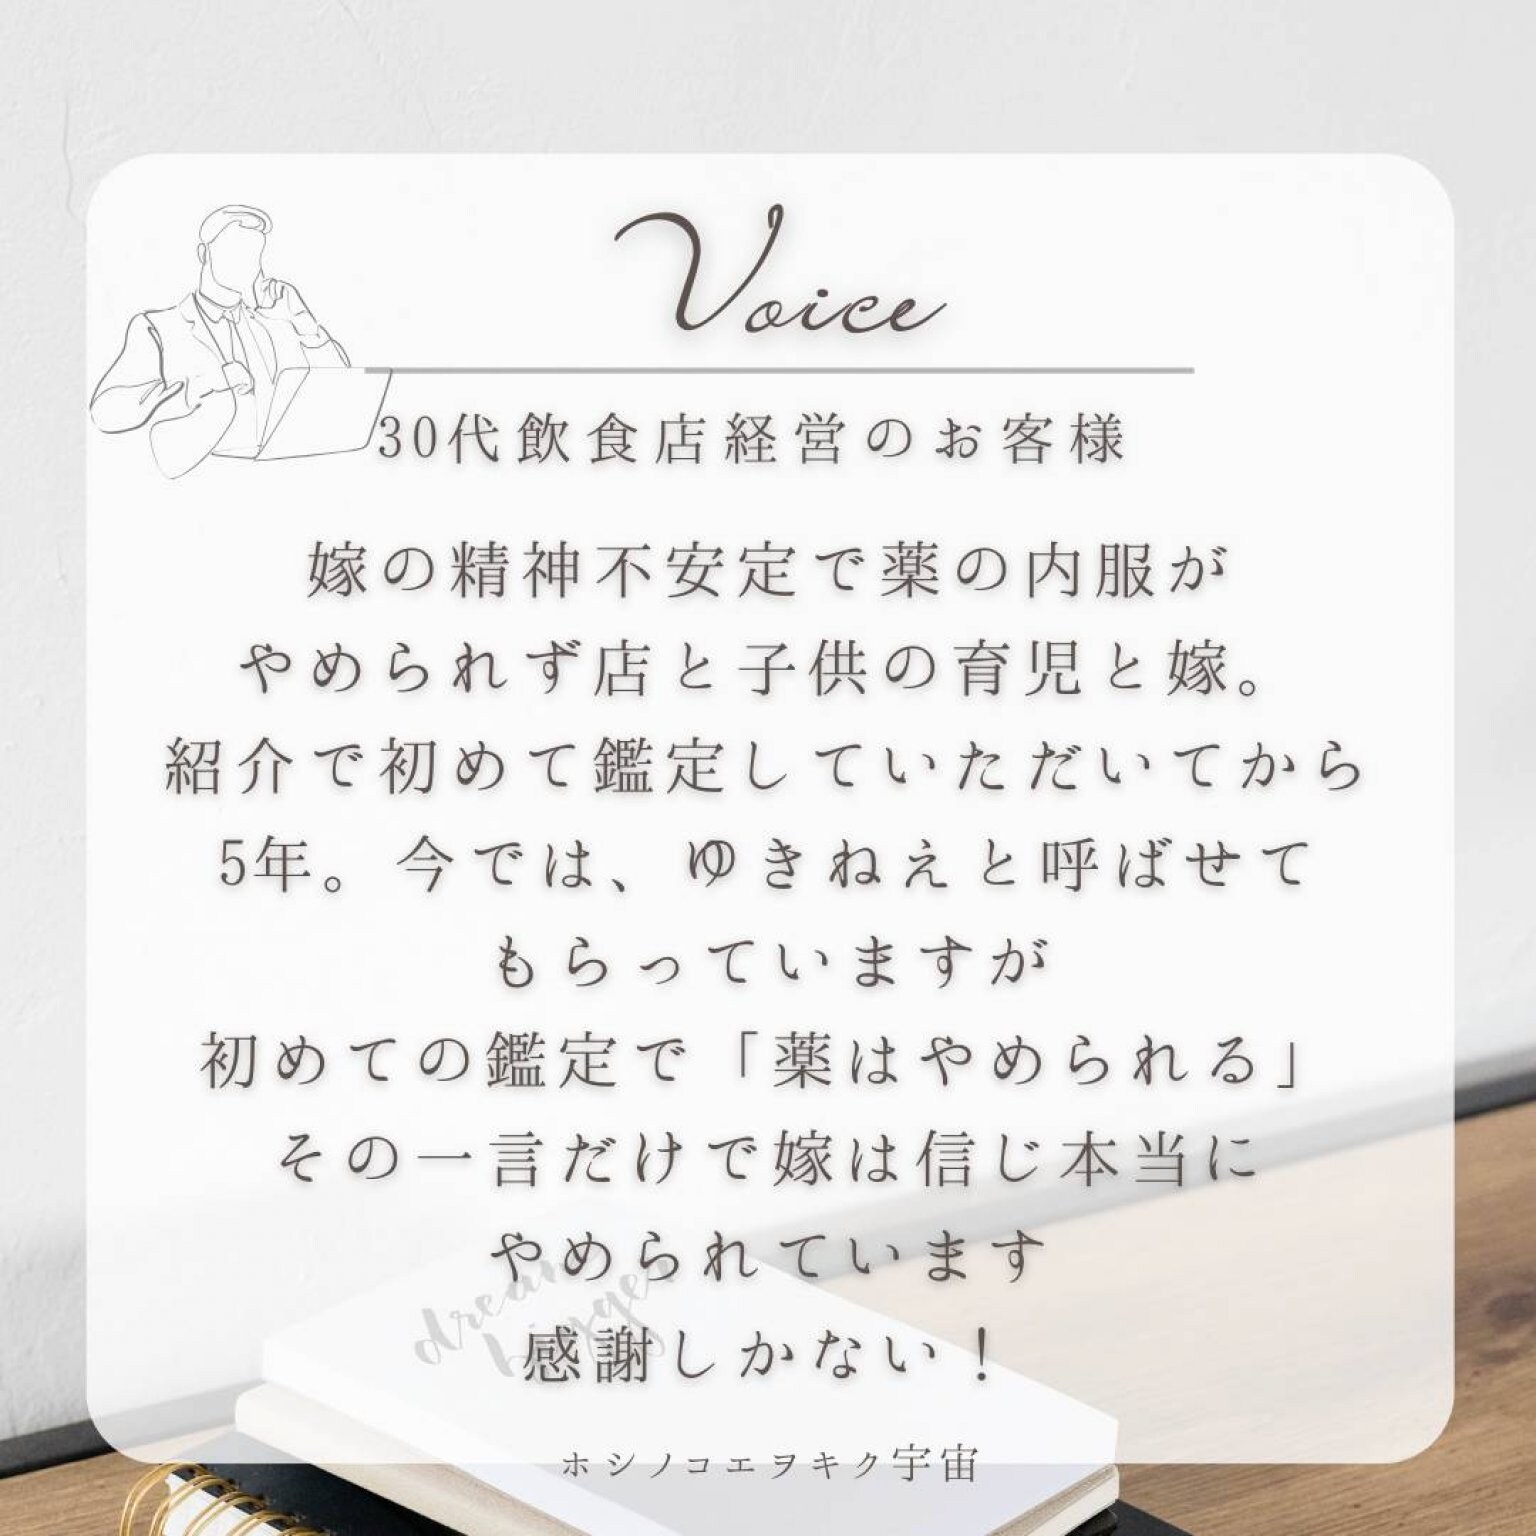 Voice
30代飲食店経営のお客様
嫁の精神不安定で薬の内服が
やめられず店と子供の育児と嫁。
紹介で初めて鑑定していただいてから
5年。今では、ゆきねえと呼ばせて
もらっていますが
初めての鑑定で「薬はやめられる」
その一言だけで嫁は信じ本当に
やめられています
dream
bigger
感謝しかない！
ホシノコエヲキク宇宙